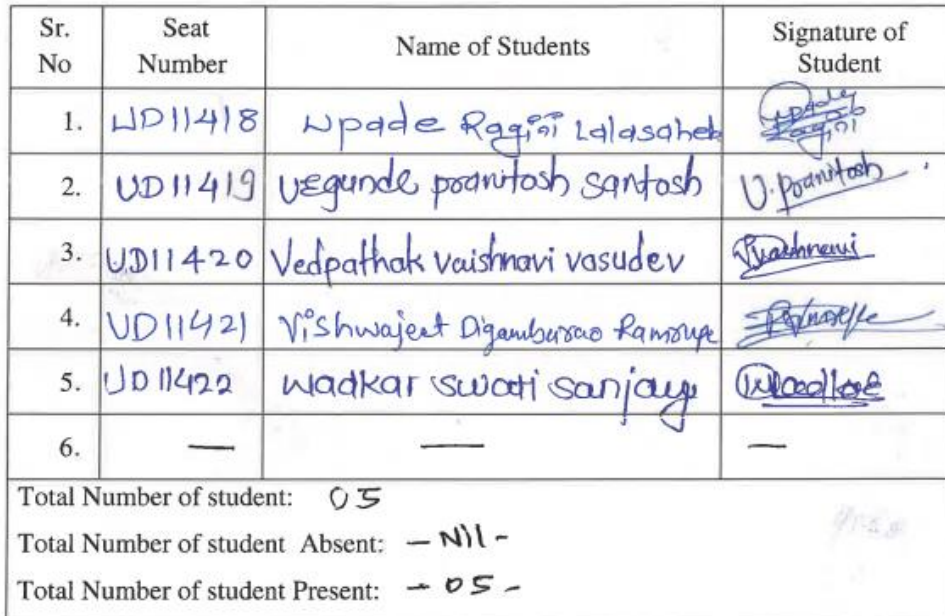 Sr. No Seat Number Name of Students Signature of Student
1. UD11418 Upade Ragini Lalasaheb Upade Ragini
2. UD11419 VEgunde pranitosh santosh V. Pranitosh
3. UD11420 Vedpathak vaishnavi vasudev Vaishnavi
4. UD11421 Vishwajeet Digambarrao
5. UD11422 wadkar swati sanjay Wadkar
6. — — —
Total Number of student: 05
Total Number of student Absent: - Nil -
Total Number of student Present: - 05 -